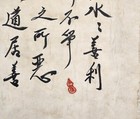 水々善利
不争
之所惡
道居善